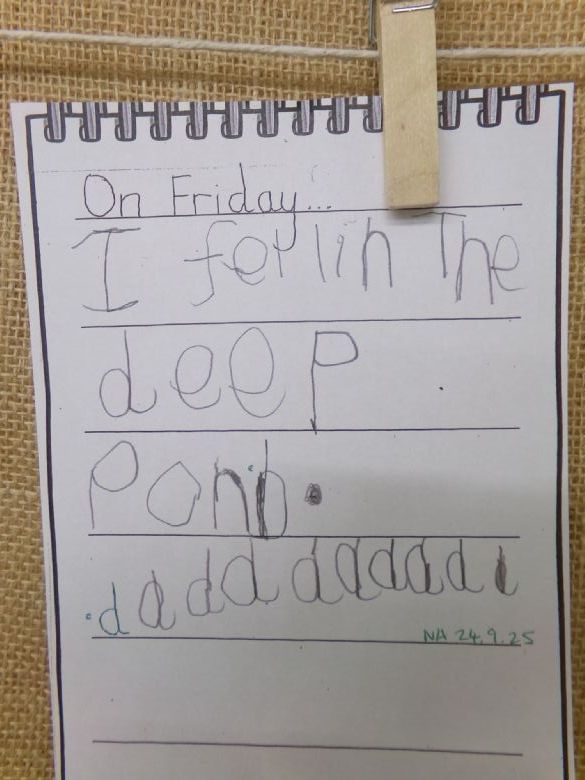 On Friday...
I fel in The
deep
Ponb.
.d d d d d d d d d d
NA 24.9.25